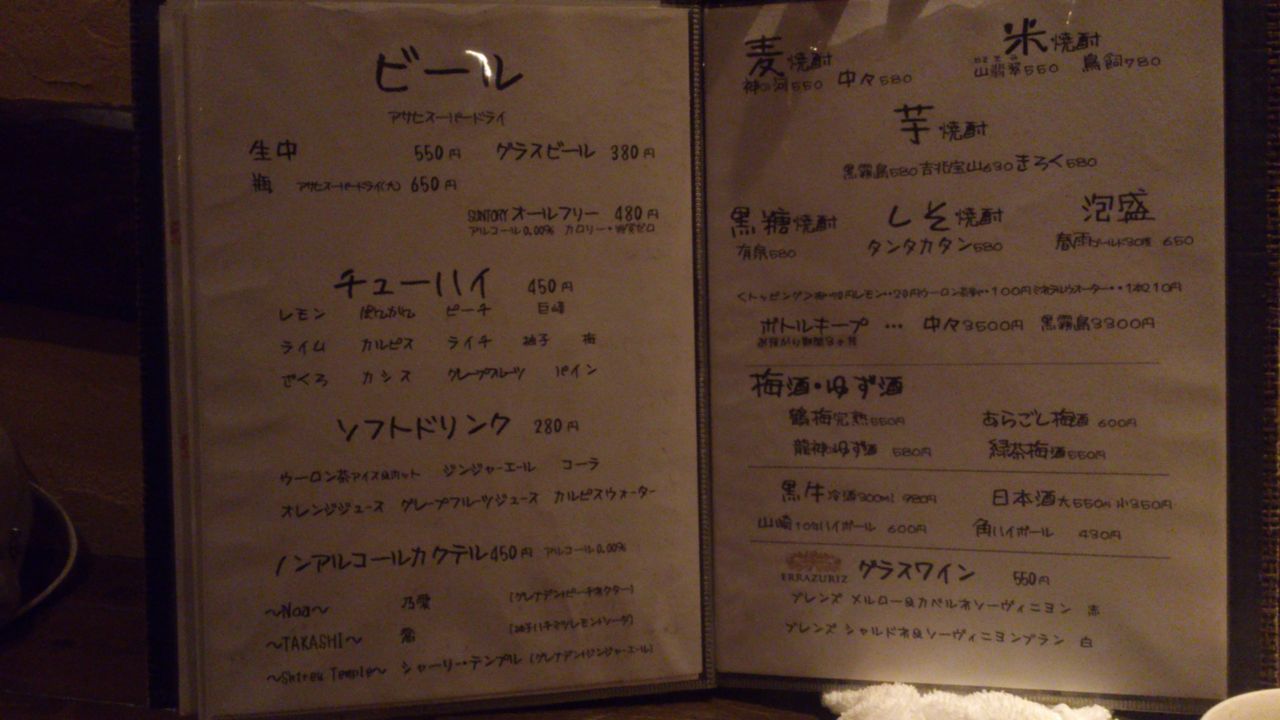 ビール
アサヒスーパードライ
生中 550円 グラスビール 380円
瓶 アサヒスーパードライ(大) 650円
SUNTORY オールフリー 480円
アルコール0.00% カロリー・糖質ゼロ
チューハイ 450円
レモン ぽんかん ピーチ 巨峰
ライム カルピス ライチ 柚子 梅
ざくろ カシス グレープフルーツ パイン
ソフトドリンク 280円
ウーロン茶アイス&ホット ジンジャーエール コーラ
オレンジジュース グレープフルーツジュース カルピスウォーター
ノンアルコールカクテル450円 アルコール0.00%
〜Noa〜 乃愛 (グレナデン+ピーチネクター)
〜TAKASHI〜 (柚子ハチミツ+レモン+ソーダ)
〜Shirey Temple〜 シャーリー・テンプル (グレナデン+ジンジャーエール)
麦焼酎
神の河550 中々580
米焼酎
山翡翠550 鳥飼780
芋焼酎
黒霧島580 吉兆宝山630 きろく580
黒糖焼酎
有泉580
しそ焼酎
タンタカタン580
泡盛
春雨ゴールド30度 650
<トッピング> レモン・・20円 ウーロン茶・・100円 ミネラルウォーター・・1本210円
ボトルキープ … 中々3500円 黒霧島3300円
お預かり期間3ヶ月
梅酒・ゆず酒
鶴梅完熟550円 あらごし梅酒 600円
龍神ゆず酒 580円 緑茶梅酒550円
黒牛冷酒300ml 980円 日本酒大550円 小350円
山崎10年ハイボール 600円 角ハイボール 430円
ERRAZURIZ グラスワイン 550円
ブレンズ メルロー&カベルネソーヴィニヨン 赤
ブレンズ シャルドネ&ソーヴィニヨンブラン 白